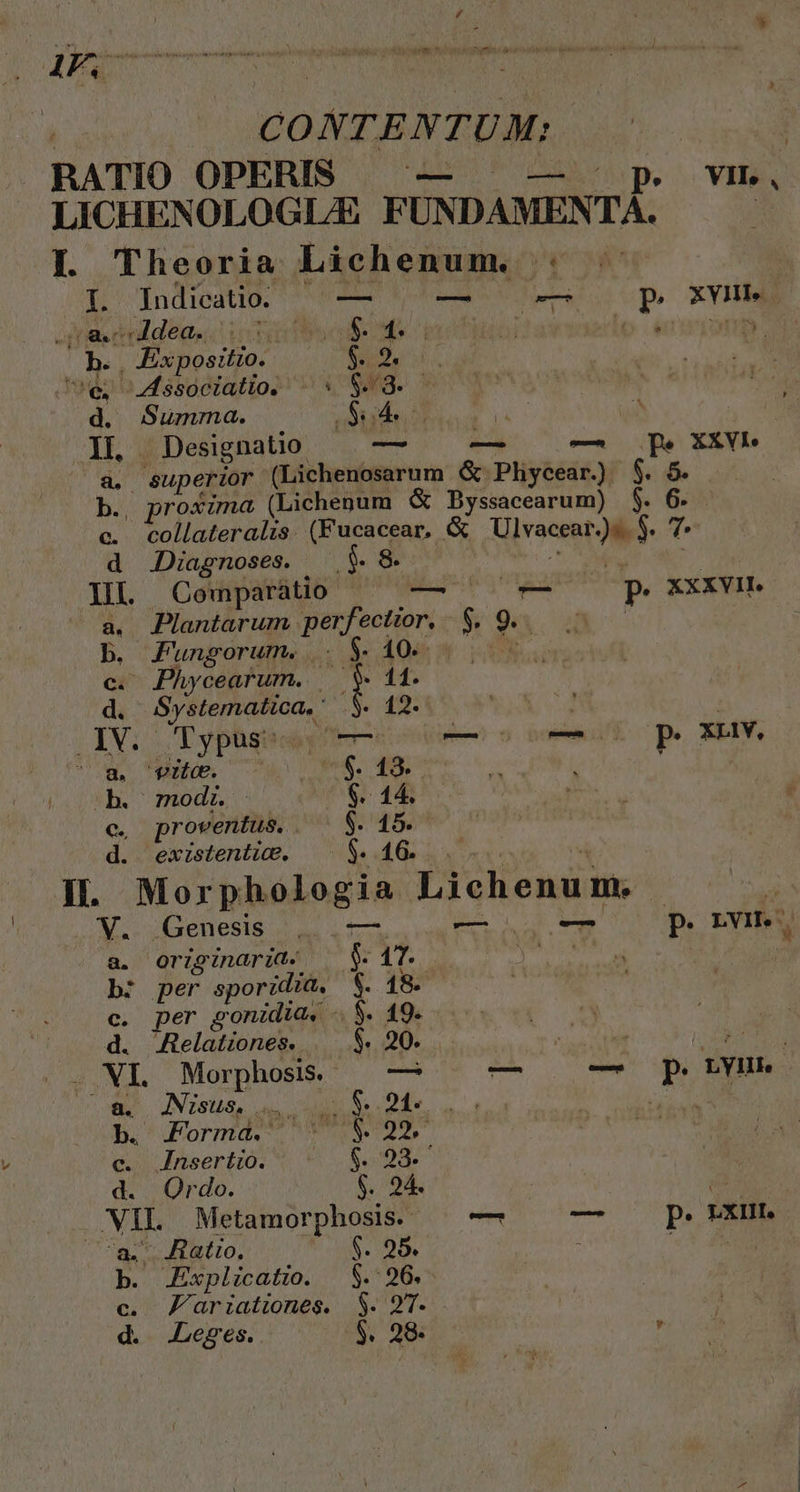 IV.
CONTENTUM:
RATIO OPERIS — — p. VII.
LICHENOLOGIÆ FUNDAMENTA.
I. Theoria Lichenum.
I. Indicatio. — — — p. XVIII.
a. Idea. §. 1.
b. Expositio. §. 2.
c. Associatio. §. 3.
d. Summa. §. 4.
II. Designatio — — — p. XXVI.
a. superior (Lichenosarum & Phycear.) §. 5.
b. proxima (Lichenum & Byssacearum) §. 6.
c. collateralis (Fucacear. & Ulvacear.). §. 7.
d Diagnoses. §. 8.
III. Comparatio — — p. XXXVII.
a. Plantarum perfectior. §. 9.
b. Fungorum. §. 10.
c. Phycearum. §. 11.
d. Systematica. §. 12.
IV. Typus — — — p. XLIV.
a. vitæ. §. 13.
b. modi. §. 14.
c. proventus. §. 15.
d. existentiæ. §. 16.
II. Morphologia Lichenum.
V. Genesis — — — p. LVII.
a. originaria. §. 17.
b. per sporidia. §. 18.
c. per gonidia. §. 19.
d. Relationes. §. 20.
VI. Morphosis. — — — p. LVIII.
a. Nisus. §. 21.
b. Forma. §. 22.
c. Insertio. §. 23.
d. Ordo. §. 24.
VII. Metamorphosis. — — p. LXIII.
a. Ratio. §. 25.
b. Explicatio. §. 26.
c. Variationes. §. 27.
d. Leges. §. 28.